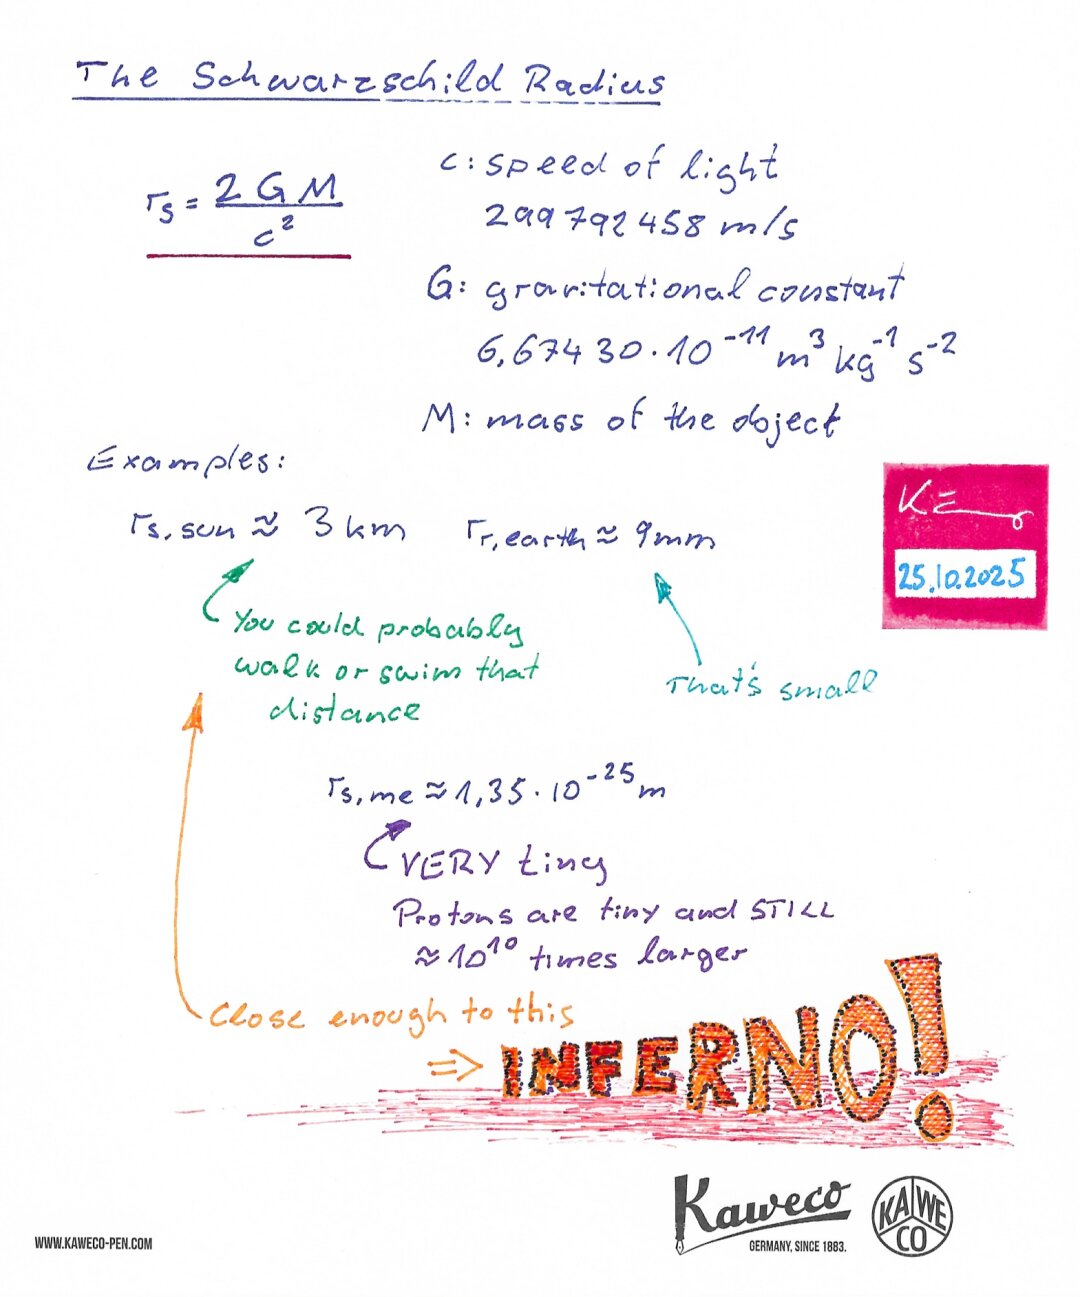 The Schwarzschild Radius
r_s = 2GM / c²
c: speed of light
299792458 m/s
G: gravitational constant
6,67430·10⁻¹¹ m³ kg⁻¹ s⁻²
M: mass of the object
Examples:
r_s,sun ≈ 3km r_r,earth ≈ 9mm
KE
25.10.2025
You could probably
walk or swim that
distance
That's small
r_s,me ≈ 1,35·10⁻²⁵ m
VERY tiny
Protons are tiny and STILL
≈10¹⁰ times larger
Close enough to this
=> INFERNO!
Kaweco
GERMANY, SINCE 1883.
KAWECO
WWW.KAWECO-PEN.COM